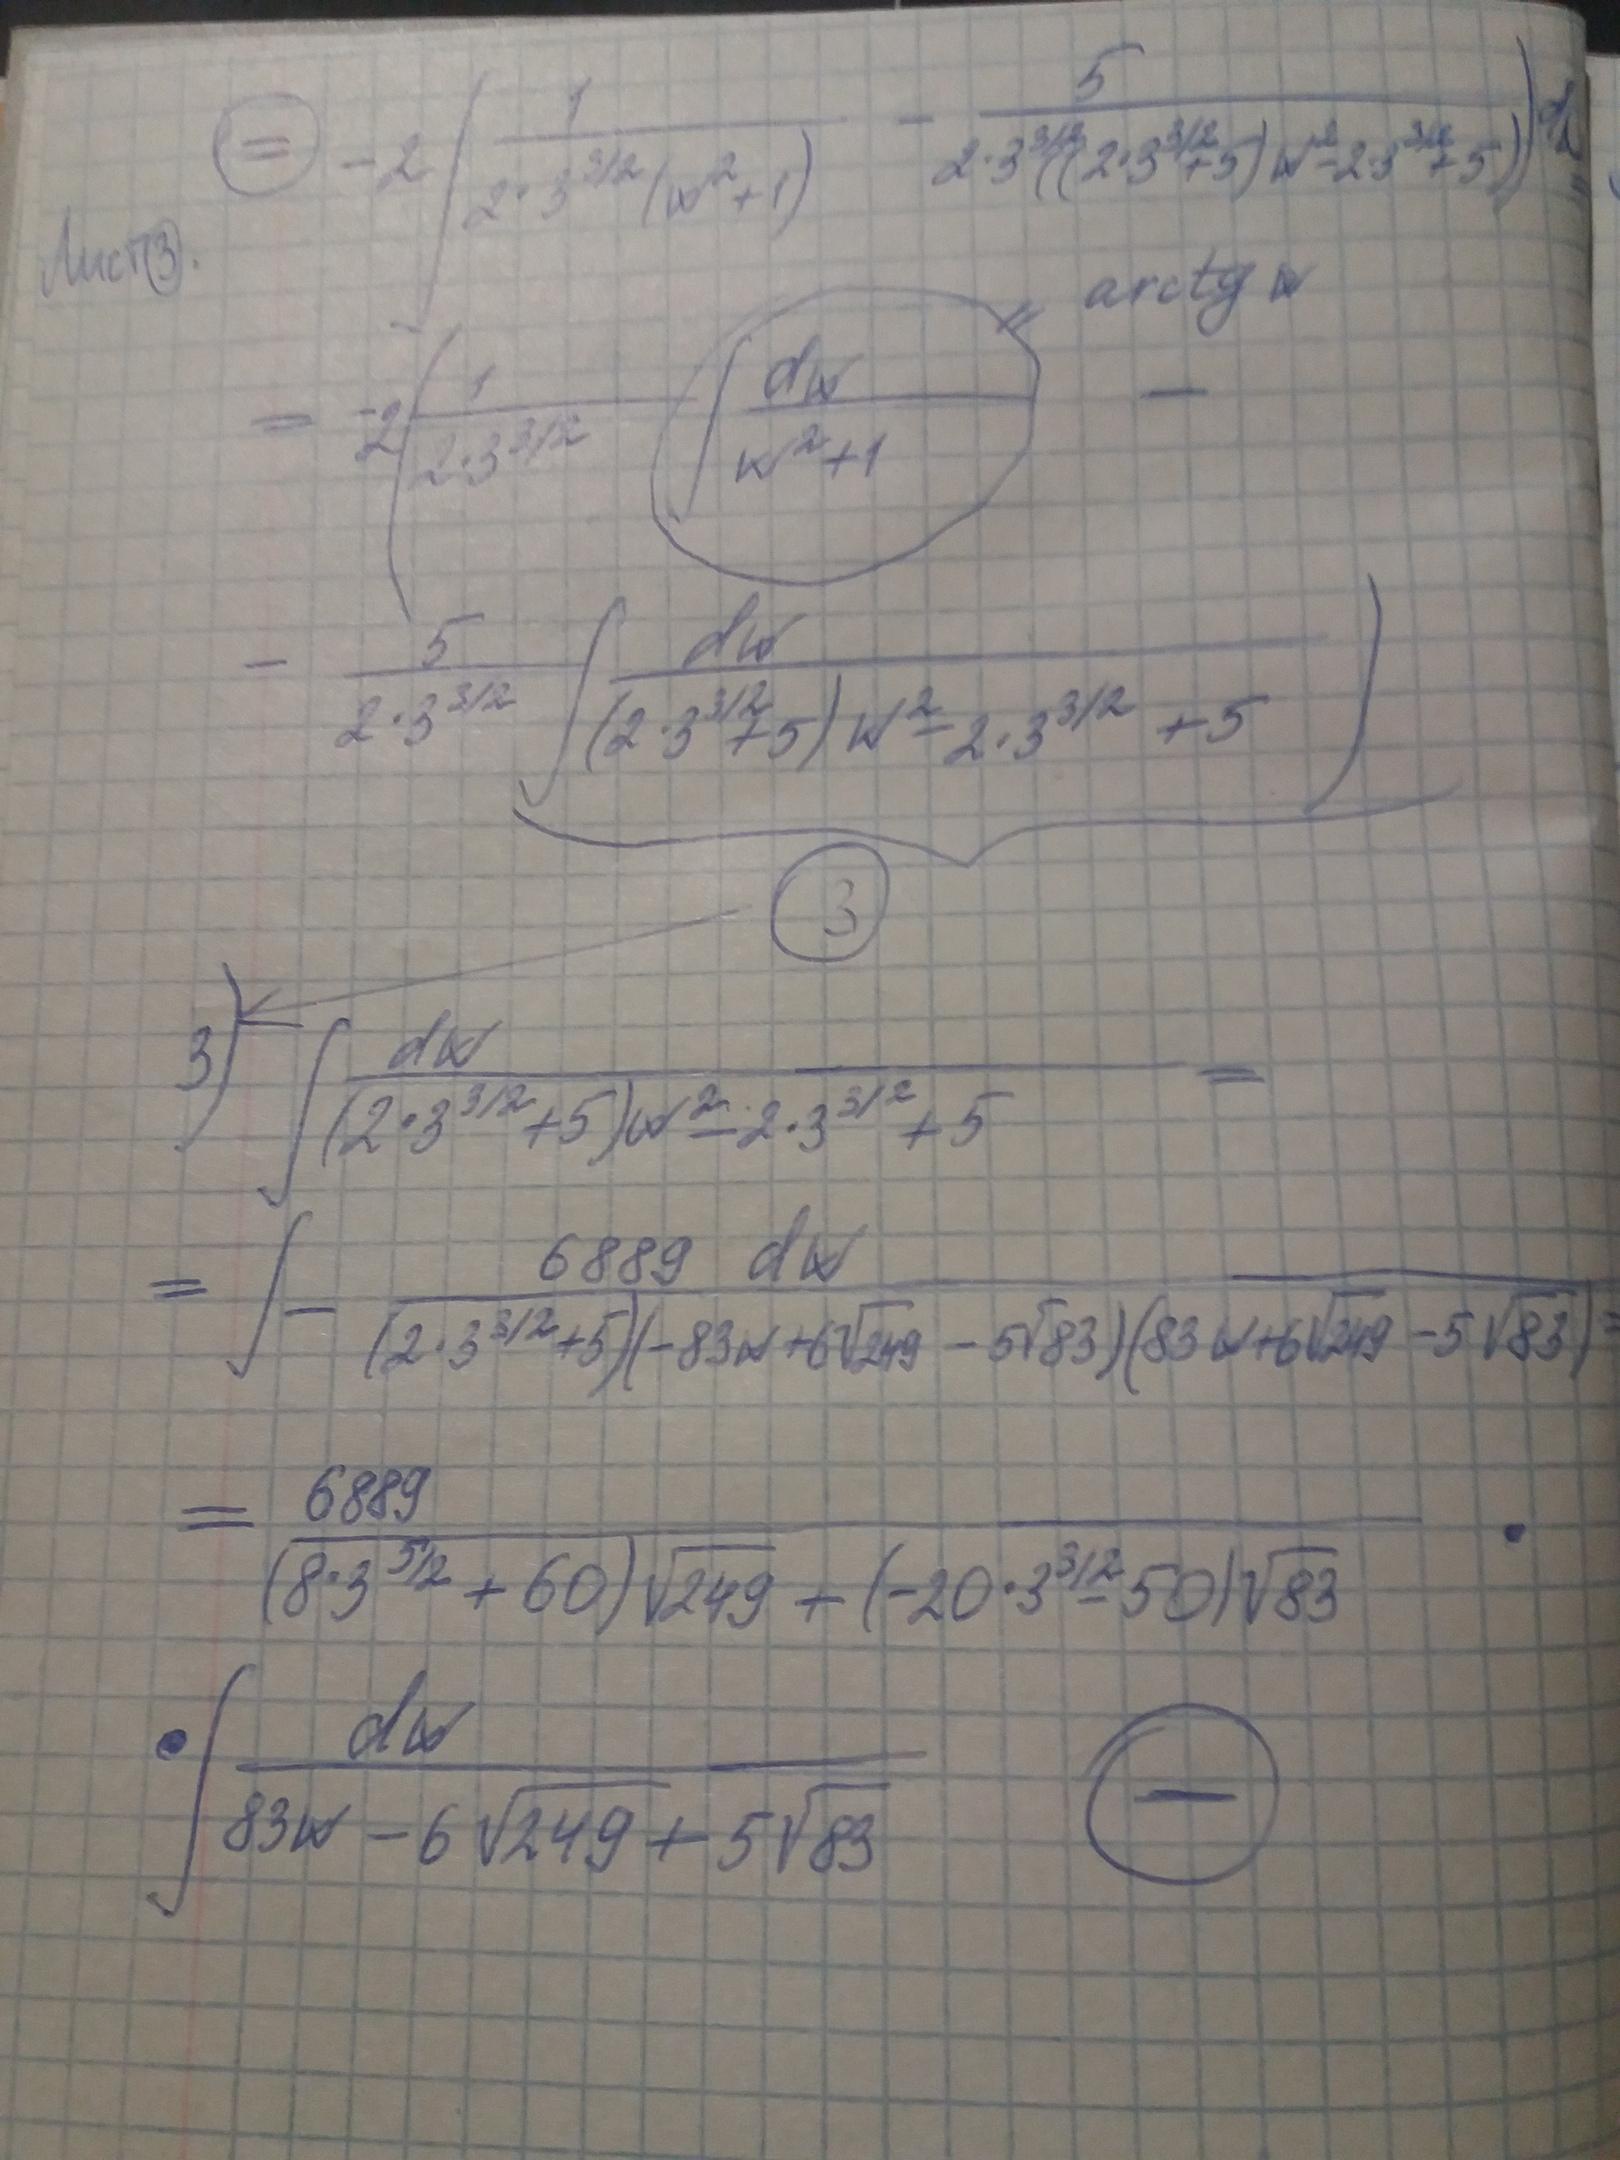 = -2 ∫ ( 1 / (2·3^{3/2}(w²+1)) - 5 / (2·3^{3/2}((2·3^{3/2}+5)w²-2·3^{3/2}+5)) ) =
Лист 3.
arctg w
= -2 ( 1 / (2·3^{3/2}) ∫ dw / (w²+1) -
- 5 / (2·3^{3/2}) ∫ dw / ((2·3^{3/2}+5)w²-2·3^{3/2}+5) )
3
3) ∫ dw / ((2·3^{3/2}+5)w²-2·3^{3/2}+5) =
= ∫ - 6889 dw / ((2·3^{3/2}+5)(-83w+6√249-5√83)(83w+6√249-5√83)) =
= 6889 / ((8·3^{5/2}+60)√249+(-20·3^{3/2}-50)√83) ·
· ∫ dw / (83w-6√249+5√83) -